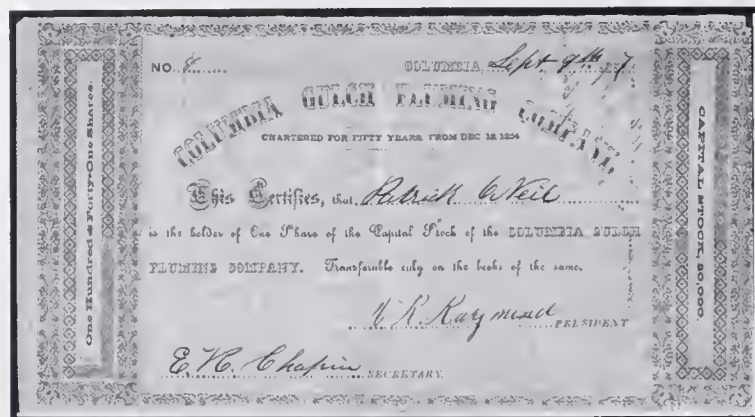 One Hundred & Forty-One Shares.
NO. 8 COLUMBIA, Sept 9th 1857
COLUMBIA GULCH FLUMING COMPANY,
CHARTERED FOR FIFTY YEARS, FROM DEC 18, 1854
This Certifies, that Patrick O'Neil
is the holder of One Share of the Capital Stock of the COLUMBIA GULCH
FLUMING COMPANY. Transferable only on the books of the same.
W. R. Raymond PRESIDENT
E. H. Chapin SECRETARY.
CAPITAL STOCK, 80,000.